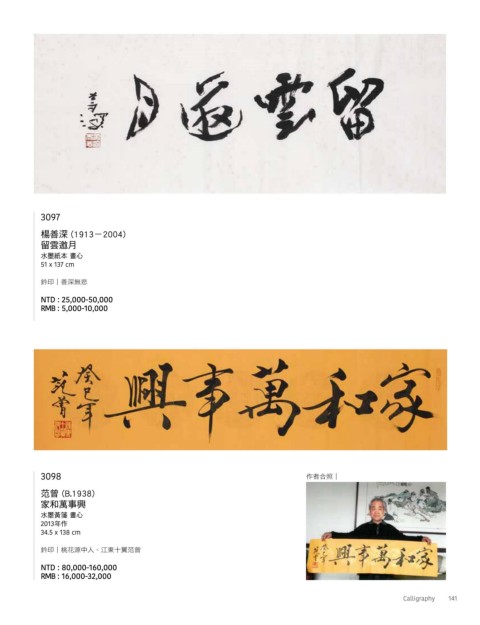 留雲邀月
善深
3097
楊善深 (1913－2004)
留雲邀月
水墨紙本 畫心
51 x 137 cm
鈐印｜善深無恙
NTD : 25,000-50,000
RMB : 5,000-10,000
家和萬事興
癸巳年
范曾
3098
范曾 (B.1938)
家和萬事興
水墨黃箋 畫心
2013年作
34.5 x 138 cm
鈐印｜桃花源中人、江東十翼范曾
NTD : 80,000-160,000
RMB : 16,000-32,000
作者合照｜
家和萬事興
Calligraphy 141